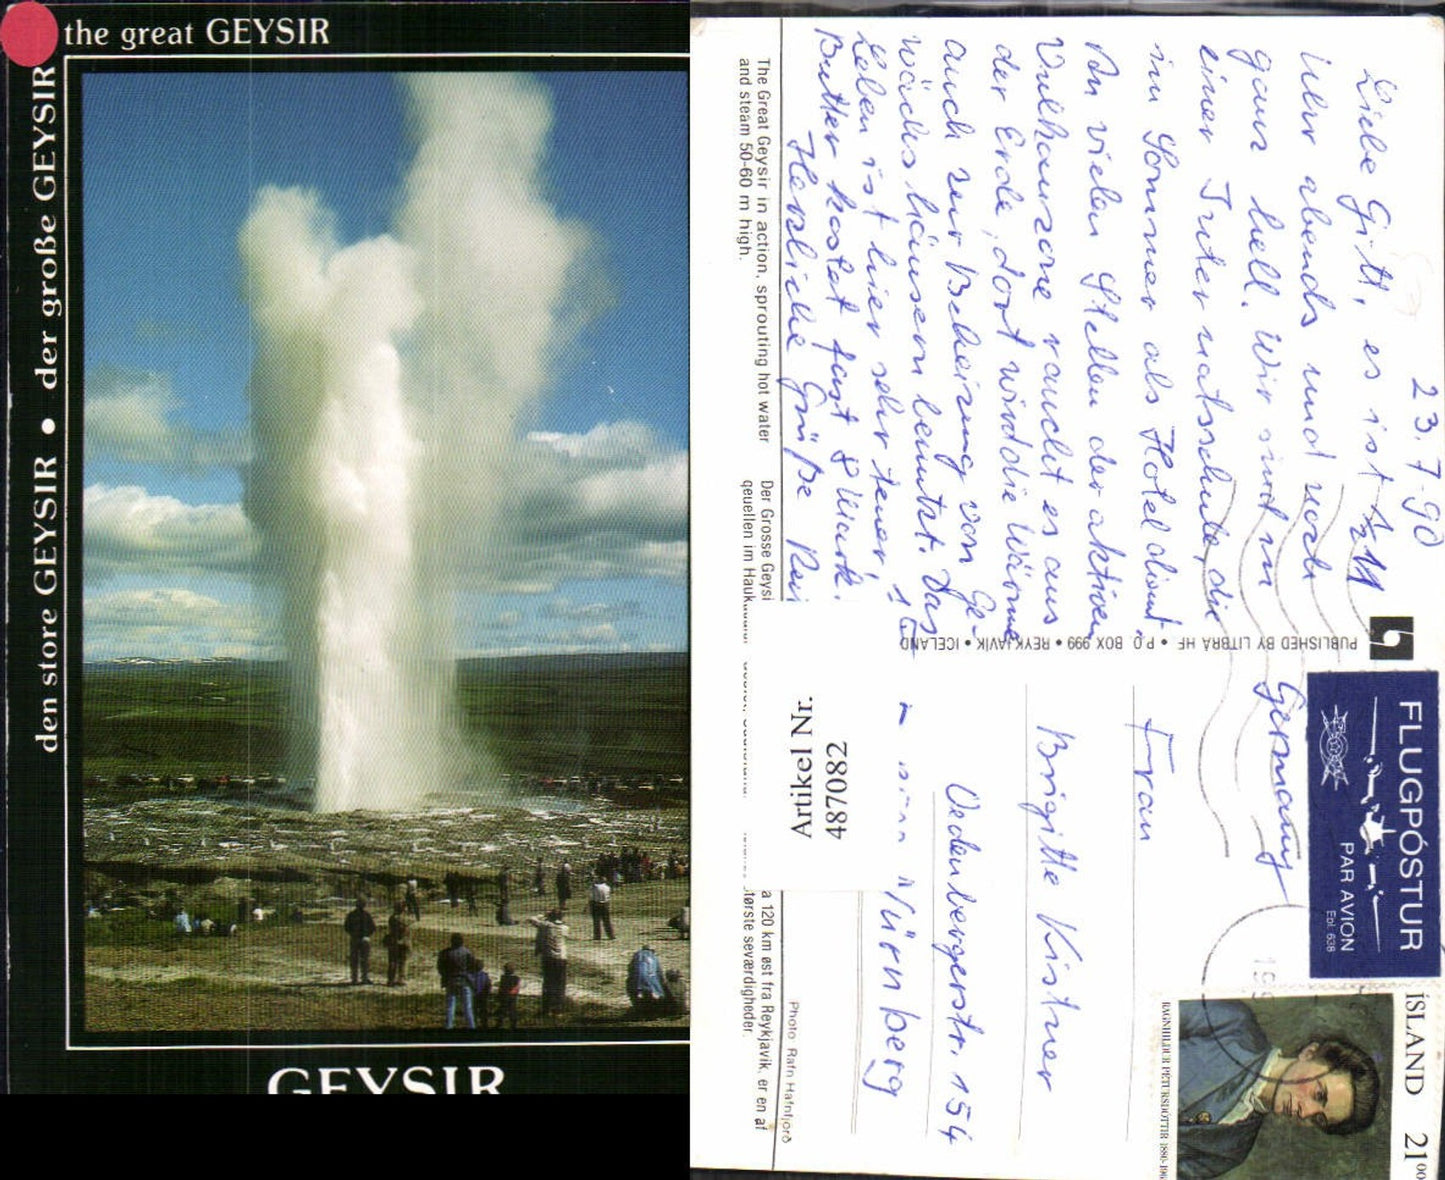 the great GEYSIR
den store GEYSIR • der große GEYSIR
GEYSIR
23.7.90
Liebe Gitt, es ist ½11
Uhr abends und noch
ganz hell. Wir sind in
einer Internatsschule, die
im Sommer als Hotel dient.
An vielen Stellen der aktiven
Vulkanzone raucht es aus
der Erde, dort wird die Wärme
auch zur Beheizung von Ge-
wächshäusern benutzt. Das
Leben ist hier sehr teuer, 1
Butter kostet fast 8 Mark.
Herzliche Grüße
The Great Geysir in action, sprouting hot water
and steam 50-60 m high.
Der Grosse Geysi
quellen im Hauk
a 120 km øst fra Reykjavik, er en af
største seværdigheder.
Photo: Rafn Hafnfjorð
PUBLISHED BY LITBRÁ HF • P.O. BOX 999 • REYKJAVÍK • ICELAND
Artikel Nr.
487082
FLUGPÓSTUR
PAR AVION
Epl. 638
ÍSLAND 21⁰⁰
RAGNHILDUR PÉTURSDÓTTIR 1880-196
Frau
Brigitte Kistner
Oedenbergerstr. 154
Nürnberg
Germany